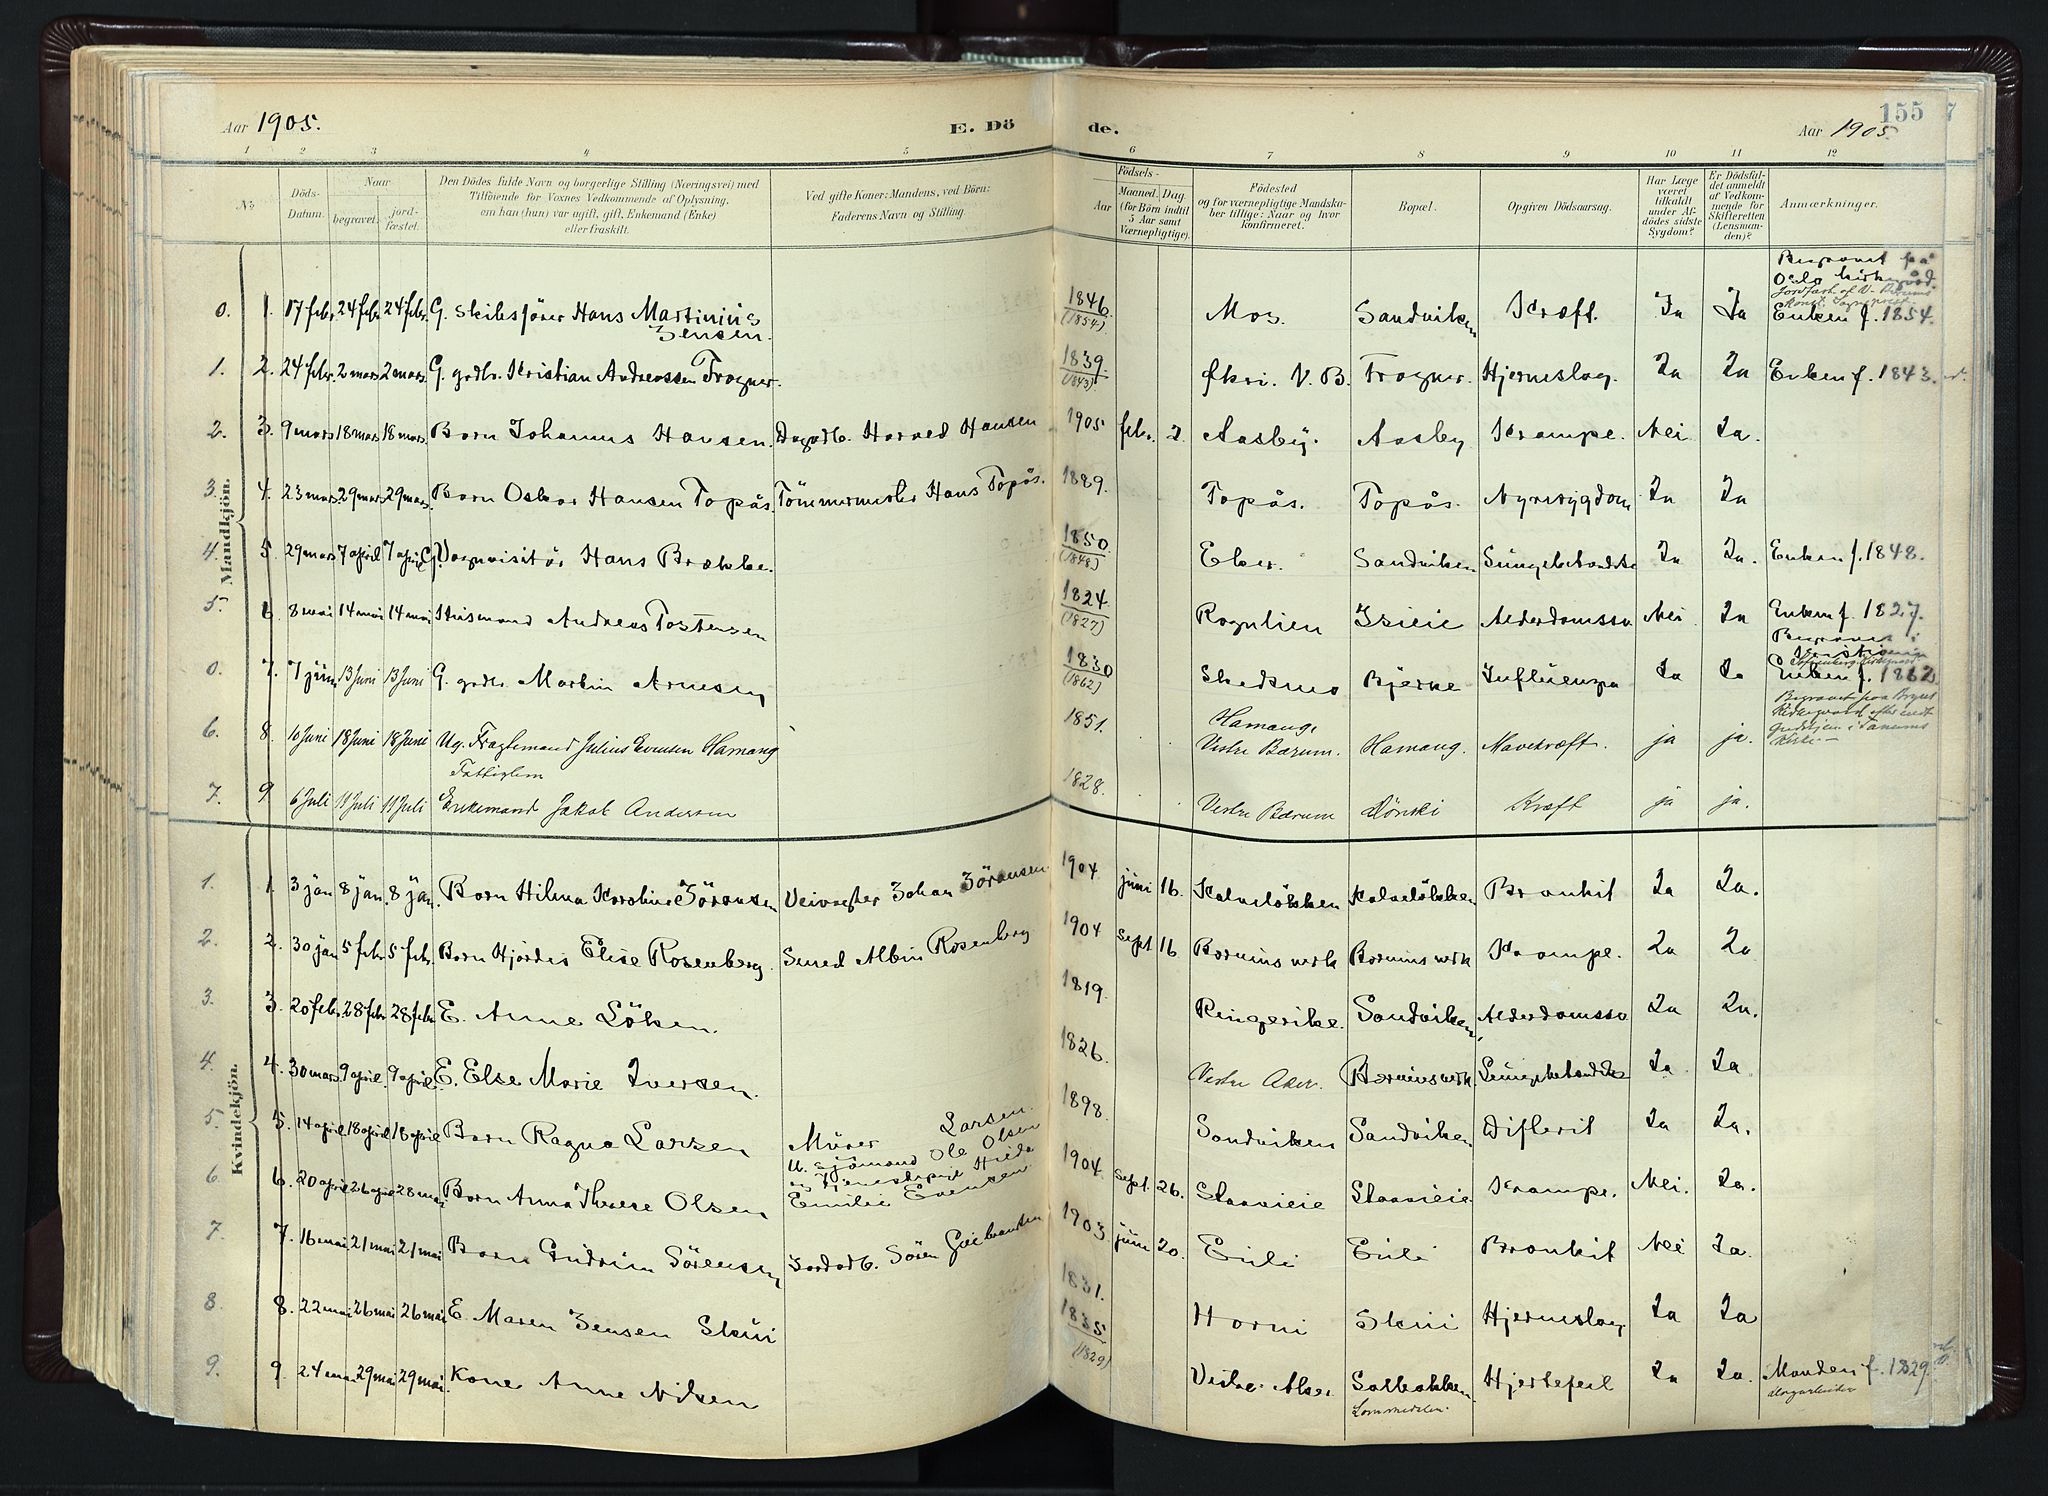 Aar 1905. E. Dö de. Aar 1905 155 7
1 2 3 4 5 6 7 8 9 10 11 12
No Döds-Datum. Naar begravet. jord-fæstet. Den Dödes fulde Navn og borgerlige Stilling (Næringsvei) med Tilföiende for Voxnes Vedkommende af Oplysning, om han (hun) var ugift, gift, Enkemand (Enke) eller fraskilt. Ved gifte Koner: Mandens, ved Börn: Faderens Navn og Stilling. Födsels- Aar Maaned. Dag. (for Börn indtil 5 Aar samt Værnepligtige). Födested og for værnepligtige Mandska-ber tillige: Naar og hvor konfirmeret. Bopæl. Opgiven Dödsaarsag. Har Læge været tilkaldt under Af-dödes sidste Sygdom? Er Dödsfal-det anmeldt af Vedkom-mende for Skifteretten (Lensman-den)? Anmærkninger.
Mandkjön.
Begravet på
Oslo kirkegård.
0. 1. 17 febr. 24 febr. 24 febr. G. Skibsförer Hans Martinius Jensen. 1846 (1854) Mos. Sandviken Kræft. Ja Ja Enken f. 1854.
1. 2. 24 febr. 2 mars. 2 mars. G. gbr. Kristian Andreassen Frogner. 1839. (1843) V. B. Frogner. Hjerneslag. Ja Ja Enken f. 1843.
2. 3. 9 mars 18 mars 18 mars. Barn Johannes Hansen. Hansen 1905 febr. 2. Aasby. Aasby Krampe. Nei Ja.
3. 4. 23 mars 29 mars 29 mars. Barn Oskar Hansen Topås. Tömmermester Hans Topås. 1889. Topås. Topås. Nyresygdom Ja Ja
4. 5. 29 mars 7 april 7 april G. Vognvisitör Hans Brække. 1850. (1848) Eker. Sandviken Lungebetændelse Ja Ja. Enken f. 1848.
5. 6. 8 mai 14 mai 14 mai Husmand Andreas Tostensen 1824. (1827) Alderdomssv Nei. Ja Enken f. 1827.
Begravet i
0. 7. 7 juni 13 Juni 13 Juni G. gbr. Martin Arnesen 1830 (1862) Skedsmo Bjerke Influenza Ja Ja Enken f. 1862
Begravet paa Bryns Kirkegaard efter endt Gudstjen. i Tanums Kirke —
6. 8. 10 Juni 18 Juni 18 Juni Ug. Julius Evensen Hamang 1851. Hamang, Vestre Bærum. Hamang. Mavekræft. ja ja.
Fattiglem
7. 9 6 Juli 11 Juli 11 Juli Enkemand Jakob Andersen 1828. Vestre Bærum Dönski Kræft ja ja.
Kvindekjön.
1. 1. 3 jan 8 jan. 8 jan. Barn Hilma Karoline Jöransen Veivogter Johan Jöransen. 1904 juni 16. Kalvelökken Kalvelökken Bronkit Ja Ja.
2. 2. 30 jan 5 febr. 5 febr. Barn Hjördis Elise Rosenberg. Smed Albin Rosenberg 1904 Sept 16 Bærums verk Bærums verk Krampe. Ja Ja
3. 3. 20 febr. 28 febr. 28 febr. E. Anne Löken. 1819. Ringerike. Sandviken, Alderdomssv Ja Ja.
4. 4. 30 mars 9 april. 9 april. E. Else Marie Iversen. 1826. Vestre Aker. Bærumsverk Lungebetændelse Ja Ja
5. 5. 14 april 18 april 18 april Barn Ragna Larsen Murer Larsen. 1898. Sandviken Sandviken Difterit Ja Ja.
6. 6. 20 april 26 april 28 mai Barn Anna Therese Olsen U. Sjömand Ole Olsen og Tjenestepige Hilda Emilie Evensen. 1904. Sept. 26. Staavieie Staavieie Krampe. Nei. Ja.
7. 7. 16 mai 21 mai 21 mai Barn Gudrun Sörensen Jordarb. Sören 1903. juni 20. Einli Einli Bronkit Nei Ja.
8. 8. 22 mai 26 mai 26 mai E. Maren Jensen Skui 1831. Horni Skui Hjerneslag Ja Ja
9. 9. 24 mai 29 mai 29 mai. Kone Anne Nilsen 1835 (1829) Vestre Aker Solbakken Lommedalen. Hjertefeil Ja Ja. Manden f. 1829.